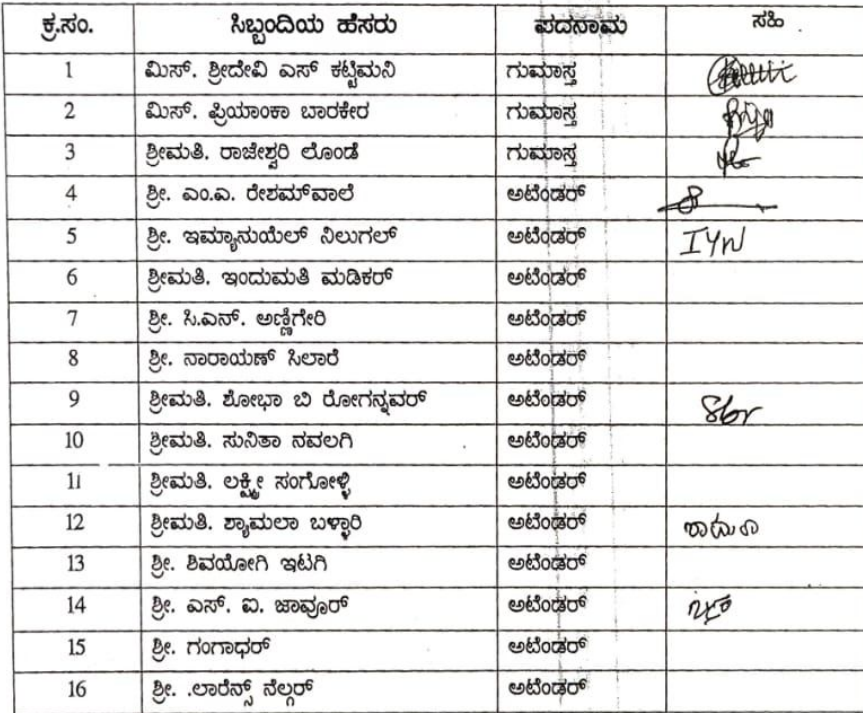 ಕ್ರ.ಸಂ. ಸಿಬ್ಬಂದಿಯ ಹೆಸರು ಪದನಾಮ ಸಹಿ
1 ಮಿಸ್. ಶ್ರೀದೇವಿ ಎಸ್ ಕಟ್ಟಿಮನಿ ಗುಮಾಸ್ತ
2 ಮಿಸ್. ಪ್ರಿಯಾಂಕಾ ಬಾರಕೇರ ಗುಮಾಸ್ತ
3 ಶ್ರೀಮತಿ. ರಾಜೇಶ್ವರಿ ಲೊಂಡೆ ಗುಮಾಸ್ತ
4 ಶ್ರೀ. ಎಂ.ಎ. ರೇಶಮ್‌ವಾಲೆ ಅಟೆಂಡರ್
5 ಶ್ರೀ. ಇಮ್ಯಾನುಯೆಲ್ ನಿಲುಗಲ್ ಅಟೆಂಡರ್ IYN
6 ಶ್ರೀಮತಿ. ಇಂದುಮತಿ ಮಡಿಕರ್ ಅಟೆಂಡರ್
7 ಶ್ರೀ. ಸಿ.ಎನ್. ಅಣ್ಣಿಗೇರಿ ಅಟೆಂಡರ್
8 ಶ್ರೀ. ನಾರಾಯಣ್ ಸಿಲಾರೆ ಅಟೆಂಡರ್
9 ಶ್ರೀಮತಿ. ಶೋಭಾ ಬಿ ರೋಗನ್ನವರ್ ಅಟೆಂಡರ್ Sbr
10 ಶ್ರೀಮತಿ. ಸುನಿತಾ ನವಲಗಿ ಅಟೆಂಡರ್
11 ಶ್ರೀಮತಿ. ಲಕ್ಷ್ಮೀ ಸಂಗೋಳ್ಳಿ ಅಟೆಂಡರ್
12 ಶ್ರೀಮತಿ. ಶ್ಯಾಮಲಾ ಬಳ್ಳಾರಿ ಅಟೆಂಡರ್
13 ಶ್ರೀ. ಶಿವಯೋಗಿ ಇಟಗಿ ಅಟೆಂಡರ್
14 ಶ್ರೀ. ಎಸ್. ಐ. ಜಾವೂರ್ ಅಟೆಂಡರ್
15 ಶ್ರೀ. ಗಂಗಾಧರ್ ಅಟೆಂಡರ್
16 ಶ್ರೀ. .ಲಾರೆನ್ಸ್ ನೆಲ್ಗರ್ ಅಟೆಂಡರ್